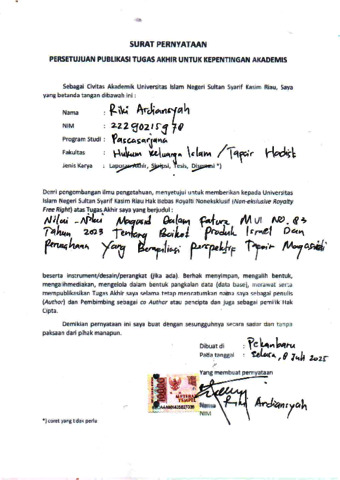 SURAT PERNYATAAN
PERSETUJUAN PUBLIKASI TUGAS AKHIR UNTUK KEPENTINGAN AKADEMIS
Sebagai Civitas Akademik Universitas Islam Negeri Sultan Syarif Kasim Riau, Saya
yang bertanda tangan dibawah ini :
Nama : Riki Ardiansyah
NIM : 22290215978
Program Studi : Pascasarjana
Fakultas : Hukum Keluarga Islam / Tafsir Hadist
Jenis Karya : Laporan Akhir, Skripsi, Tesis, Disertasi *)
Demi pengembangan ilmu pengetahuan, menyetujui untuk memberikan kepada Universitas
Islam Negeri Sultan Syarif Kasim Riau Hak Bebas Royalti Noneksklusif (Non-ekslusive Royalty
Free Right) atas Tugas Akhir saya yang berjudul :
Nilai-Nilai Maqasid Dalam Fatwa MUI NO. 83
Tahun 2023 Tentang Boikot Produk Israel Dan
Perusahaan Yang Berafiliasi perspektif Tafsir Maqasidi
beserta instrument/desain/perangkat (jika ada). Berhak menyimpan, mengalih bentuk,
mengalihmediakan, mengelola dalam bentuk pangkalan data (data base), merawat serta
mempublikasikan Tugas Akhir saya selama tetap mencantumkan nama saya sebagai penulis
(Author) dan Pembimbing sebagai co Author atau pencipta dan juga sebagai pemilik Hak
Cipta.
Demikian pernyataan ini saya buat dengan sesungguhnya secara sadar dan tanpa
paksaan dari pihak manapun.
Dibuat di : Pekanbaru
Pada tanggal : Selasa, 8 Juli 2025
Yang membuat pernyataan
METERAI
TEMPEL
Nama Riki Ardiansyah
NIM
*) coret yang tidak perlu